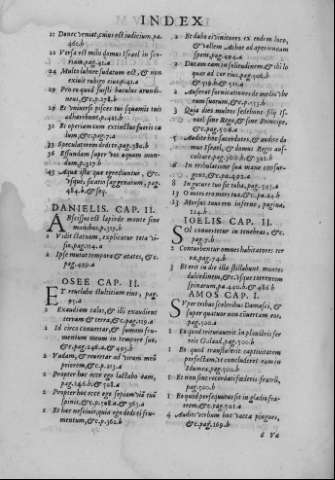 INDEX
21 Donec veniat, cuius est iudicium, pa.
46.b
22 Versa est mihi domus Israel in sco-
riam, pag.41.a
24 Multo labore sudatum est, & non
exiuit rubigo eius, 41.a
29 Pro eo quod fuisti baculus arundi-
neus, &c. p.378.b
29 Et vniuersi pisces tui squamis tuis
adhærebunt, p.491.b
32 Et operiam cum extinctus fueris cæ
lum, p.308.b
33 Speculatorem dedi te, pag.380.b
36 Effundam super vos aquam mun-
dam, p.327.b
47 Aqua ista quæ egrediuntur, &c.
vsque, sicut in sagenarum, pag.
484. &
DANIELIS. CAP. II.
Abscissus est lapis de monte sine
manibus, p.319.b
2 Vidit statuam, explicatur tota vi-
sio, pag.124.a
2 Ipse mutat tempora & ætates, &c.
pag.429.a
OSEE CAP. II.
Et reuelabo stultitiam eius, pag.
95.a
2 Exaudiam cælos, & illi exaudient
terram & terra, &c. pag.119.a
2 Id circo conuertar, & sumam fru-
mentum meum in tempore suo,
&c. pag.246.a & 495.b
2 Vadam, & reuertar ad virum meũ
priorem, &c. p.213.a
2 Propter hoc ecce ego lactabo eam,
pag.146.b, & 308.a
2 Propter hoc ecce ego sepiam viã tuã
spinis, &c. p.308.a & 363.a
2 Et hæc nesciuit, quia ego dedi ei fru-
mentum, &c. p.362.b
2 Et dabo ei vinitores ex eodem loco,
& vallem Achor ad aperiendam
spem, pag.404.a
2 Ducam eam in solitudinem, & ibi lo
quar ad cor eius, pag.308.b
& 519.b & 311.a
2 Auferam fornicationes de medio vbe
rum suorum, &c. p.153.b
3 Quia dies multos sedebunt filij Is-
rael sine Rege, & sine Principe,
&c. pag.508.a
5 Audite hoc sacerdotes, & audite do
mus Israel, & domus Regis au-
scultate, pag.300.b & 302.b
6 In tribulatione sua mane consur-
gent, &c. pa.492.a
8 In gutture tuo sit tuba, pag.213.a
13 O mors ero mors tua, &c. pa.214.b
13 Morsus tuus ero inferne, pagina,
214.b
IOELIS CAP. II.
Sol conuertetur in tenebras, &c.
pag.7.b
2 Contabantur omnes habitatores ter
ræ, pa.74.b
3 Et erit in die illa stillabunt montes
dulcedinem, & c. vsque torrentem
spinarum, pa.440.b & 486.b
AMOS CAP. I.
Super tribus sceleribus Damasci, &
super quatuor non cõuertam eum,
pag.500.a
1 Eo quod trituraverint in plaustris fer
reis Galaad, pag.500.b
1 Eo quod transtulerit captiuitatem
perfectam, vt concluderet eam in
Idumea, pag.500.b
1 Et non sint recordati fœderis fratrũ,
pag.500.b
1 Eo quod persequutus sit in gladio fra-
trem, &c. pag.501.a
4 Audite verbum hoc vaccæ pingues,
& c. pag.169.b